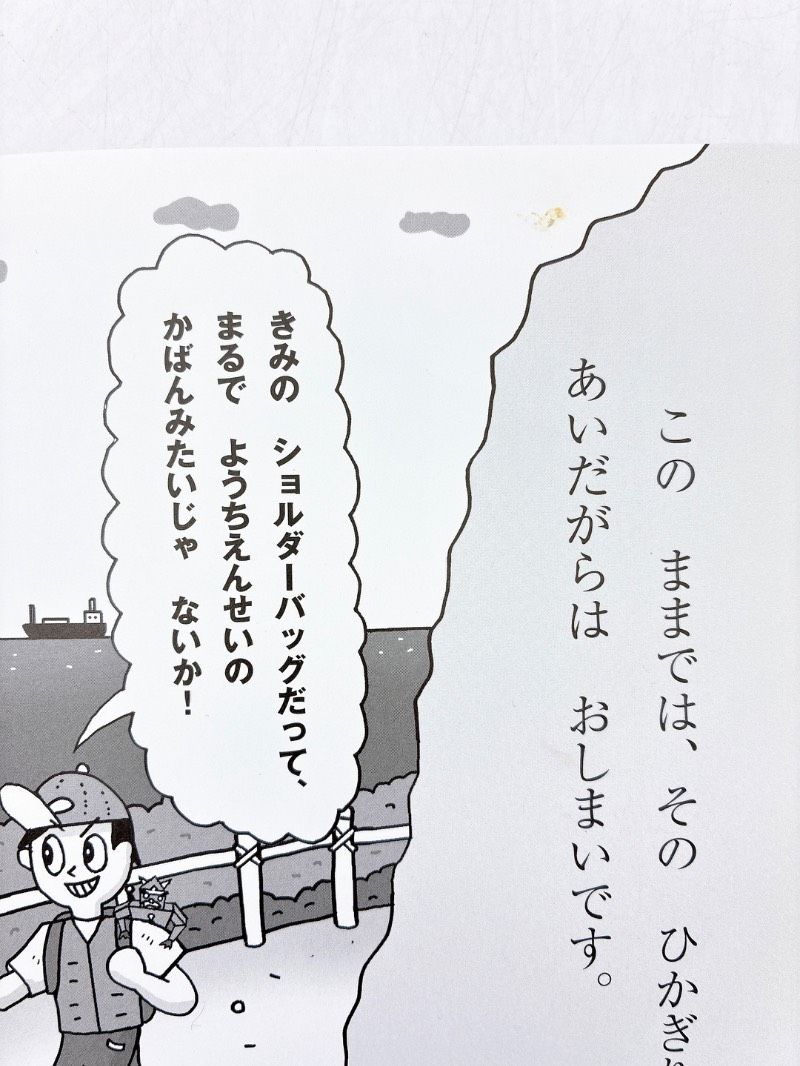 この　ままでは、その　ひかぎ
あいだがらは　おしまいです。
きみの　ショルダーバッグだって、
まるで　ようちえんせいの
かばんみたいじゃ　ないか！